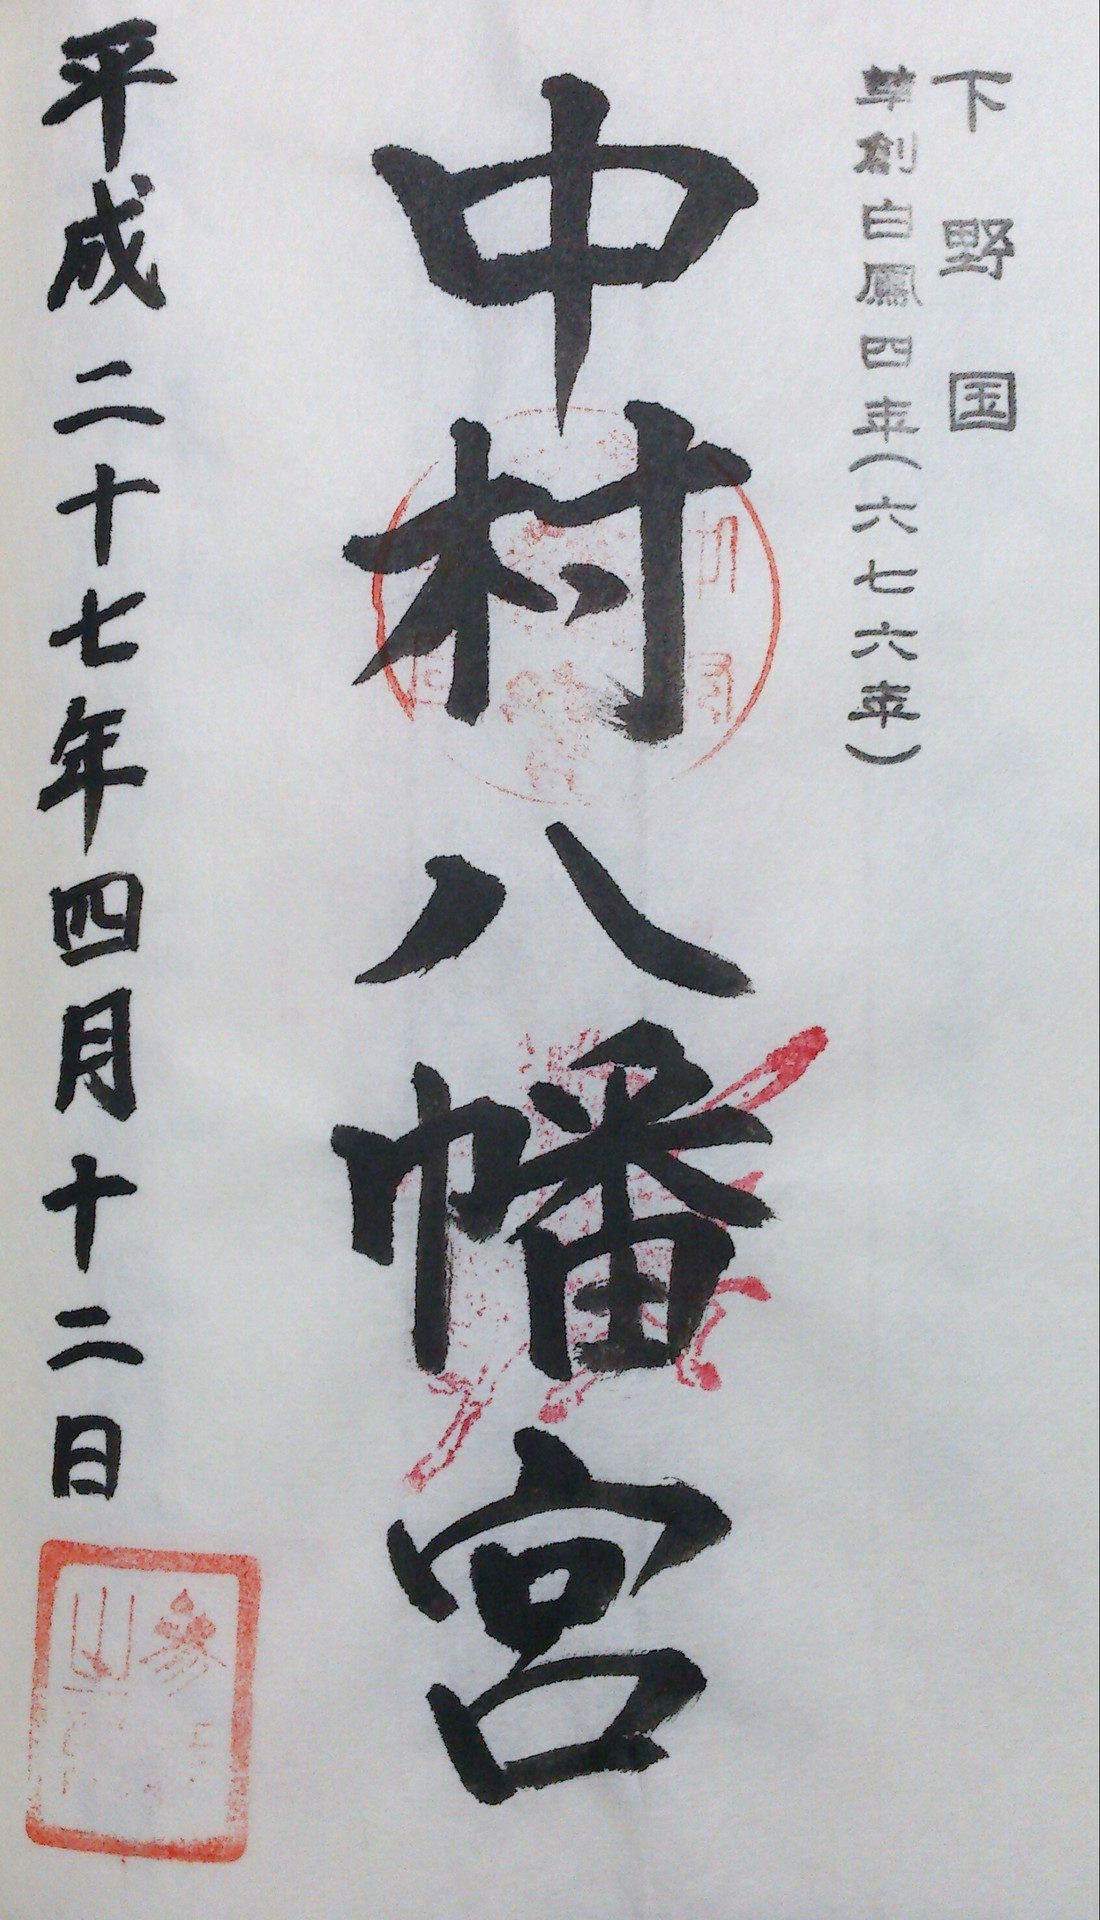 下野国
草創白鳳四年(六七六年)
中村八幡宮
平成二十七年四月十二日